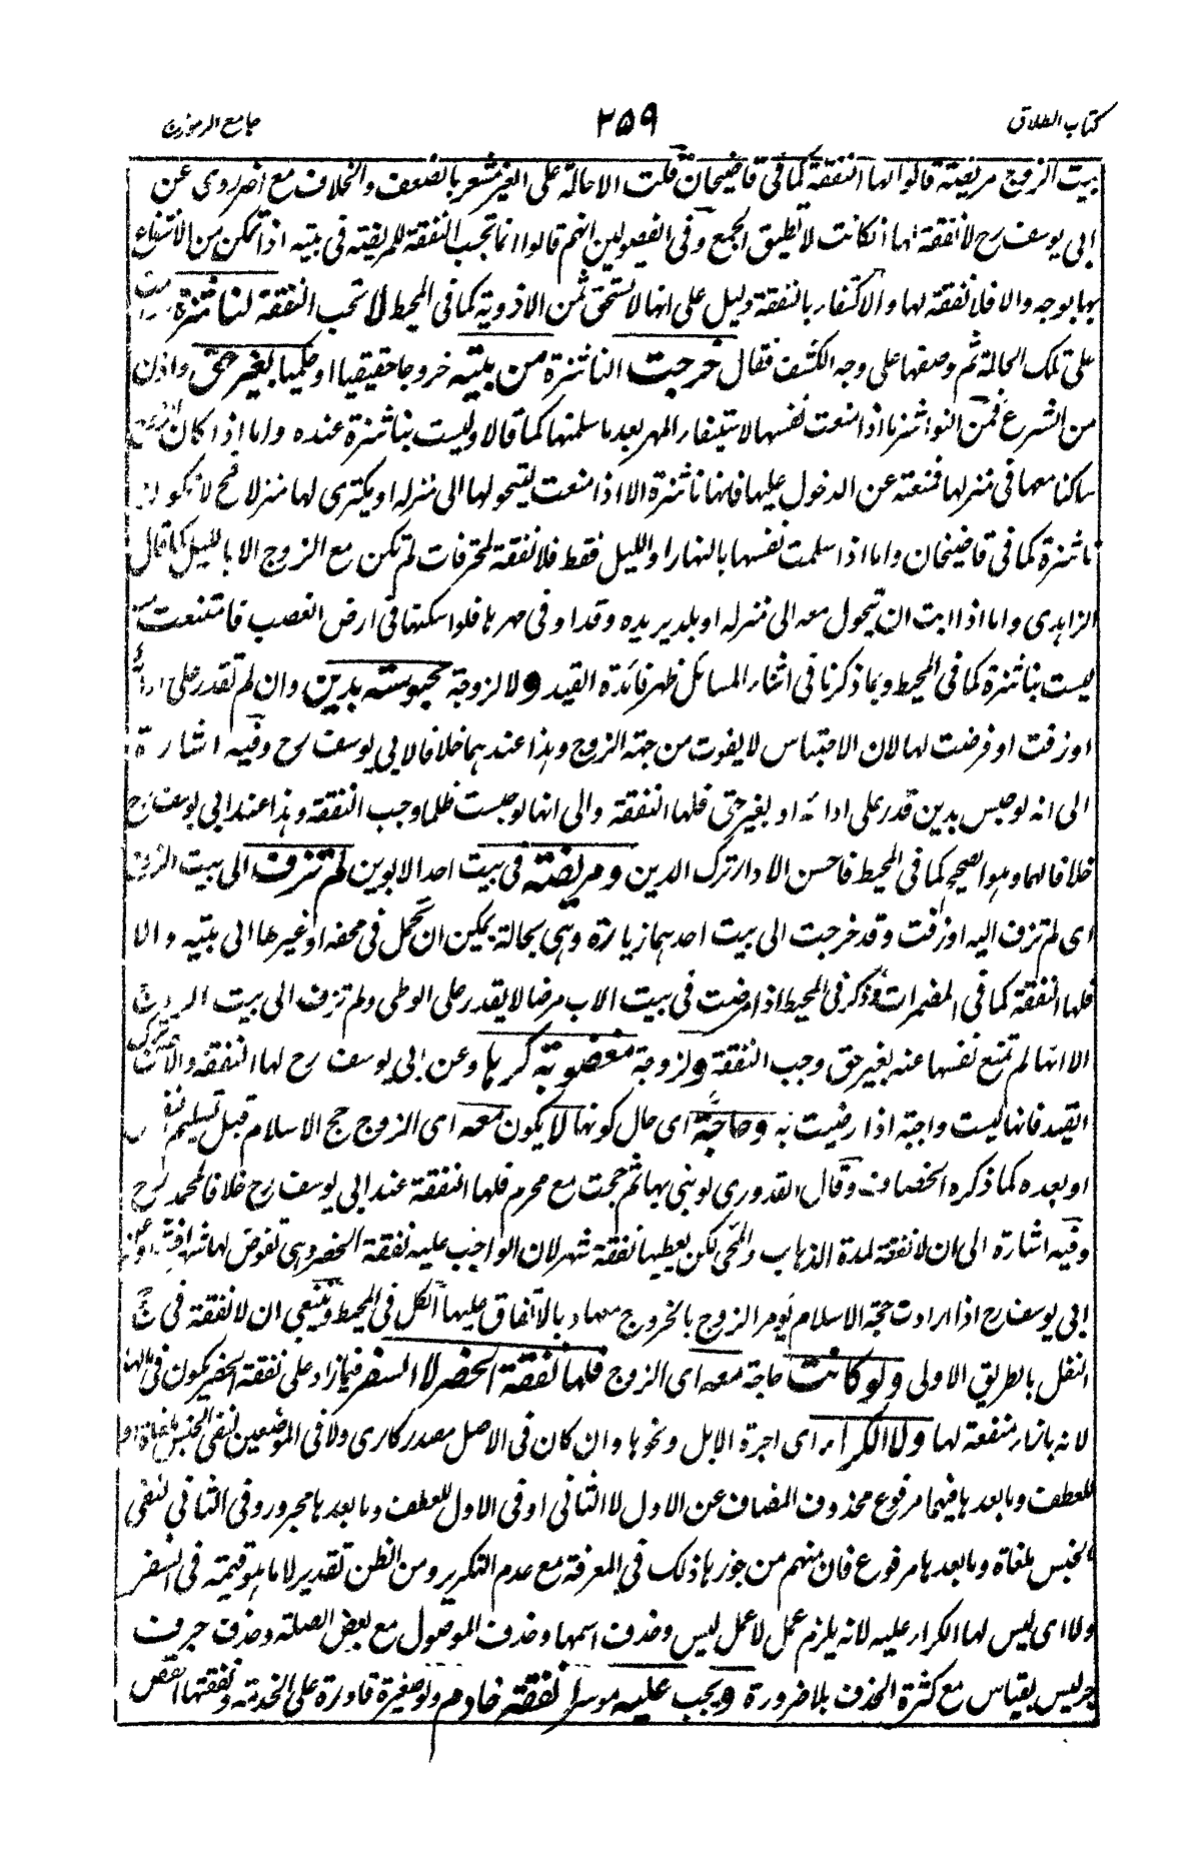 كتاب الطلاق ٢٥٩ جامع الرموز
بيت الزوج مريضة قالوا لها النفقة كما فى قاضيخان قلت الاحالة على الغير مشعر بالضعف والخلاف مع آخر روى عن
ابى يوسف رح لا نفقة لها ان كانت لا تطيق الجمع وفى الفصولين انهم قالوا انما تجب النفقة للمريضة فى بيته اذا تمكن من الانتفاع
بها بوجه والا فلا نفقة لها والاكتفاء بالنفقة دليل على انها لا تستحق ثمن الادوية كما فى المحيط لا تجب النفقة لناشزة
على تلك الحالة ثم وصفها على وجه الكشف فقال خرجت الناشزة من بيته خروجا حقيقيا او حكميا بغير حق واذن
من الشرع فمن النواشز ما اذا منعت نفسها لاستيفاء المهر بعد ما سلمتها كما قالا وليست بناشزة عنده واما اذا كان الزوج
ساكنا معها فى منزلها فمنعته عن الدخول عليها فانها ناشزة الا اذا منعت ليتحولها الى منزله او يكترى لها منزلا فح لا يكون
ناشزة كما فى قاضيخان واما اذا سلمت نفسها بالنهار او الليل فقط فلا نفقة لمحترفات لم تكن مع الزوج الا بالليل كما قال
الزاهدى واما اذا ابت ان تتحول معه الى منزله او بلد يريده وقد اوفى مهرها فلو اسكنها فى ارض الغصب فامتنعت منه
ليست بناشزة كما فى المحيط وبما ذكرنا فى اثناء المسائل ظهر فائدة القيد ولا لزوجة محبوسة بدين وان لم تقدر على ادائه
او زفت او فرضت لها لان الاحتباس لا يفوت من جهة الزوج وهذا عندهما خلافا لابى يوسف رح وفيه اشارة
الى انه لو حبس بدين قدر على ادائه او بغير حق فلها النفقة والى انها لو حبست ظلما وجب النفقة وهذا عند ابى يوسف رح
خلافا لهما وهو الصحيح كما فى المحيط فاحسن الاداء ترك الدين ومريضة فى بيت احد الابوين لم تزف الى بيت الزوج
اى لم تزف اليه او زفت وقد خرجت الى بيت احدهما زيارة وهى بحالة يمكن ان تحمل فى محفة او غيرها الى بيته والا
فلها النفقة كما فى المضمرات وذكر فى المحيط اذا مرضت فى بيت الاب مرضا لا يقدر على الوطى ولم تزف الى بيت الزوج
الا انها لم تمنع نفسها عنه بغير حق وجب النفقة ولزوجة مغصوبة كرها وعن ابى يوسف رح لها النفقة والاثبات ترك
القيد فانها ليست واجبة اذا رضيت به وحاجة اى حال كونها لا يكون معه اى الزوج حج الاسلام قبل تسليم النفس
او بعده كما ذكره الخصاف وقال القدورى لو بنى بها ثم حجت مع محرم فلها النفقة عند ابى يوسف رح خلافا لمحمد رح
وفيه اشارة الى ان لا نفقة لمدة الذهاب والمجئ لكن يعطيها نفقة شهر لان الواجب عليه نفقة الحضر وهى تفرض لها شهرا فشهرا وعن
ابى يوسف رح اذا ارادت حجة الاسلام يؤمر الزوج بالخروج معها وبالانفاق عليها الكل فى المحيط وينبغى ان لا نفقة فى حج
النفل بالطريق الاولى ولو كانت حاجة معه اى الزوج فلها نفقة الحضر لا السفر فما زاد على نفقة الحضر يكون فى مالها
لانه بازاء منفعة لها ولا الكراء اى اجرة الابل ونحوها وان كان فى الاصل مصدر كارى ولا فى الموضعين لنفى الجنس ملغاة او
للعطف وما بعدها فيهما مرفوع محذوف المضاف عن الاول لا الثانى او فى الاول للعطف وما بعدها مجرور وفى الثانى لنفى
الجنس ملغاة وما بعدها مرفوع فان منهم من جوزها ذلك فى المعرفة مع عدم التكرير ومن الظن تقدير لا ما هو قيمته فى السفر
ولا اى ليس لها الكراء عليه لانه يلزم عمل لا عمل ليس وحذف اسمها وحذف الموصول مع بعض الصلة وحذف حرف
جر ليس بقياس مع كثرة الحذف بلا ضرورة ويجب عليه موسرا نفقة خادم ولو صغيرة قادرة على الخدمة ونفقتها انقص